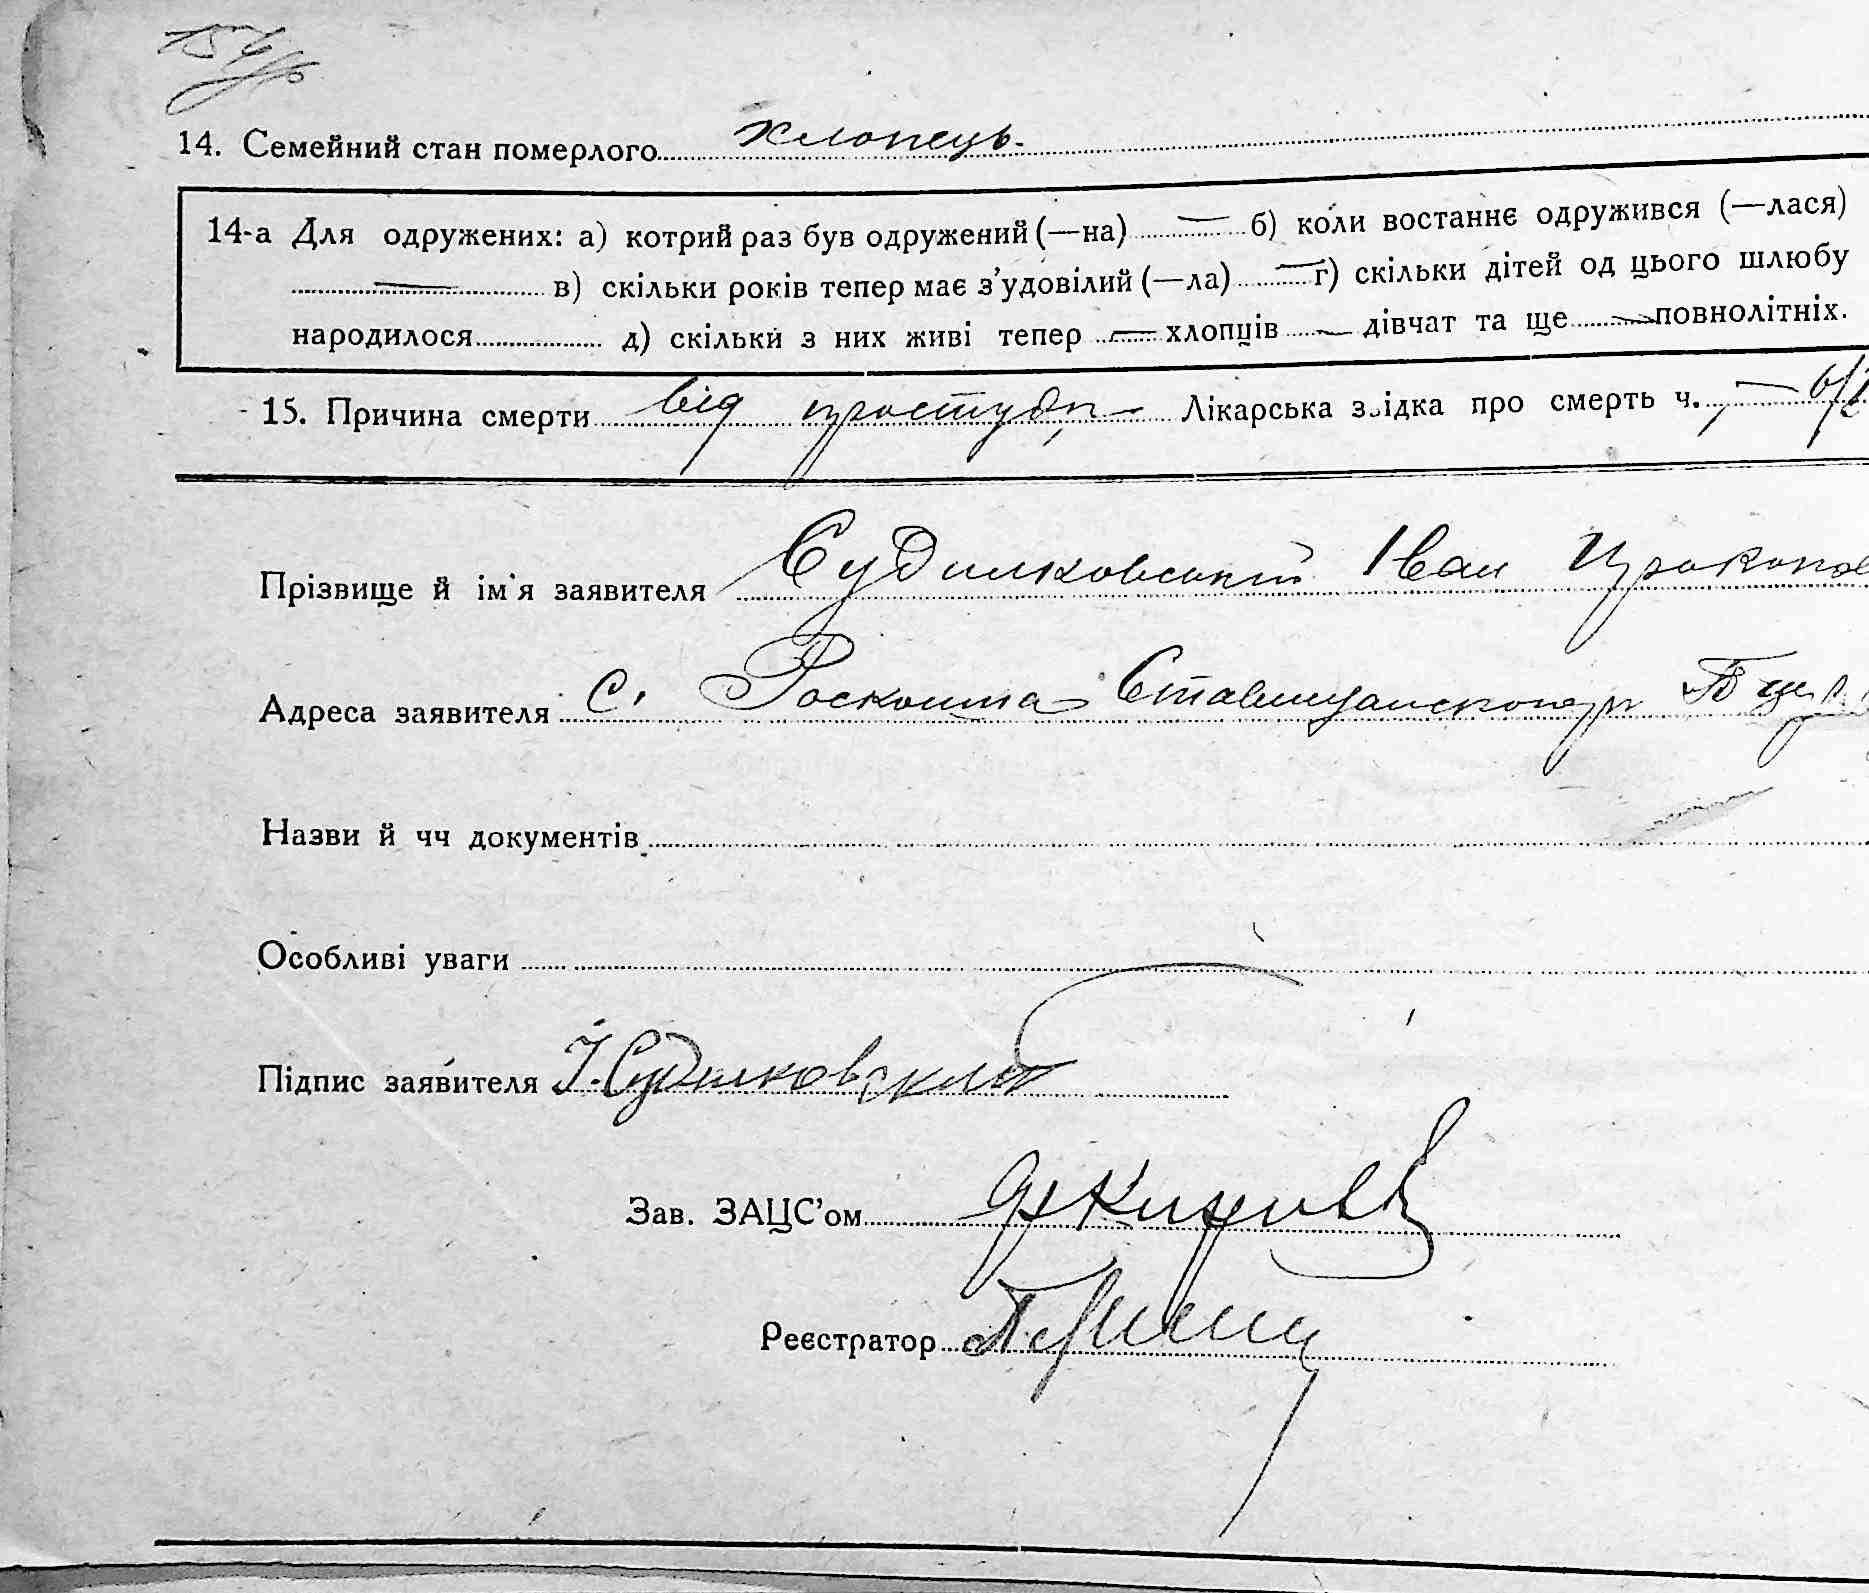 154/6
14. Семейний стан померлого хлопець.
14-а Для одружених: а) котрий раз був одружений (—на) — б) коли востаннє одружився (—лася)
— в) скільки років тепер має з’удовілий (—ла) — г) скільки дітей од цього шлюбу
народилося д) скільки з них живі тепер — хлопців — дівчат та ще — повнолітніх.
15. Причина смерти від простуди — Лікарська звідка про смерть ч. —
Прізвище й ім'я заявителя Судилковський Іван Прокопов
Адреса заявителя с. Роскошна Ставищанського р
Назви й чч документів
Особливі уваги
Підпис заявителя І. Судилковский
Зав. ЗАЦС’ом
Реєстратор